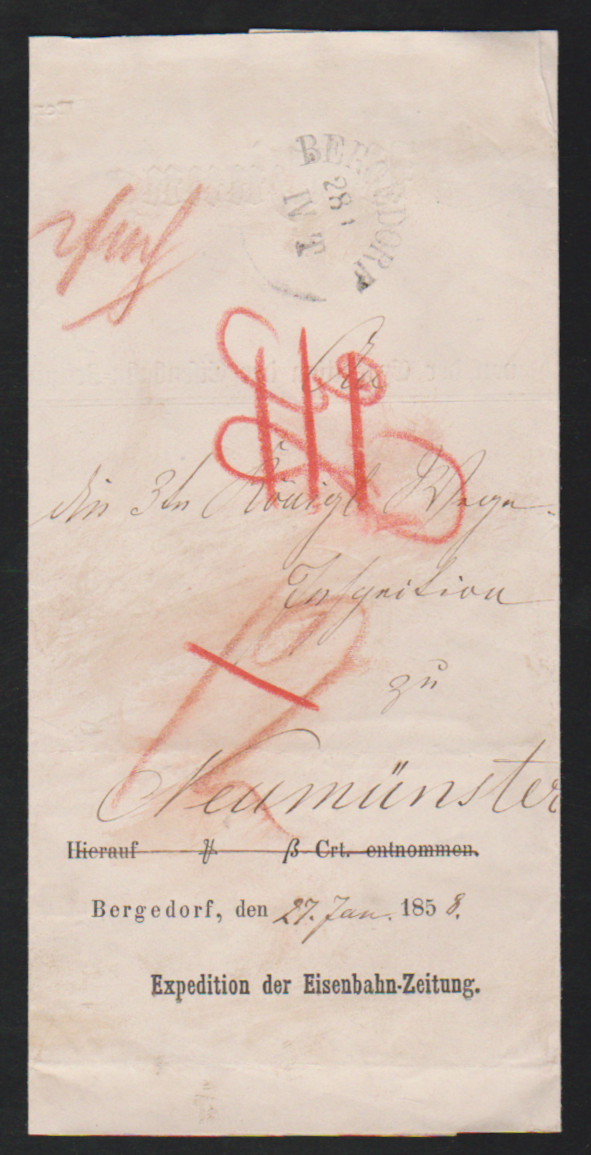 BERGEDORF
28 1
An
die 3te Königl Wege-
Inspection
zu
Neumünster
Hierauf ꝟ ß Crt. entnommen.
Bergedorf, den 27. Jan. 1858.
Expedition der Eisenbahn-Zeitung.